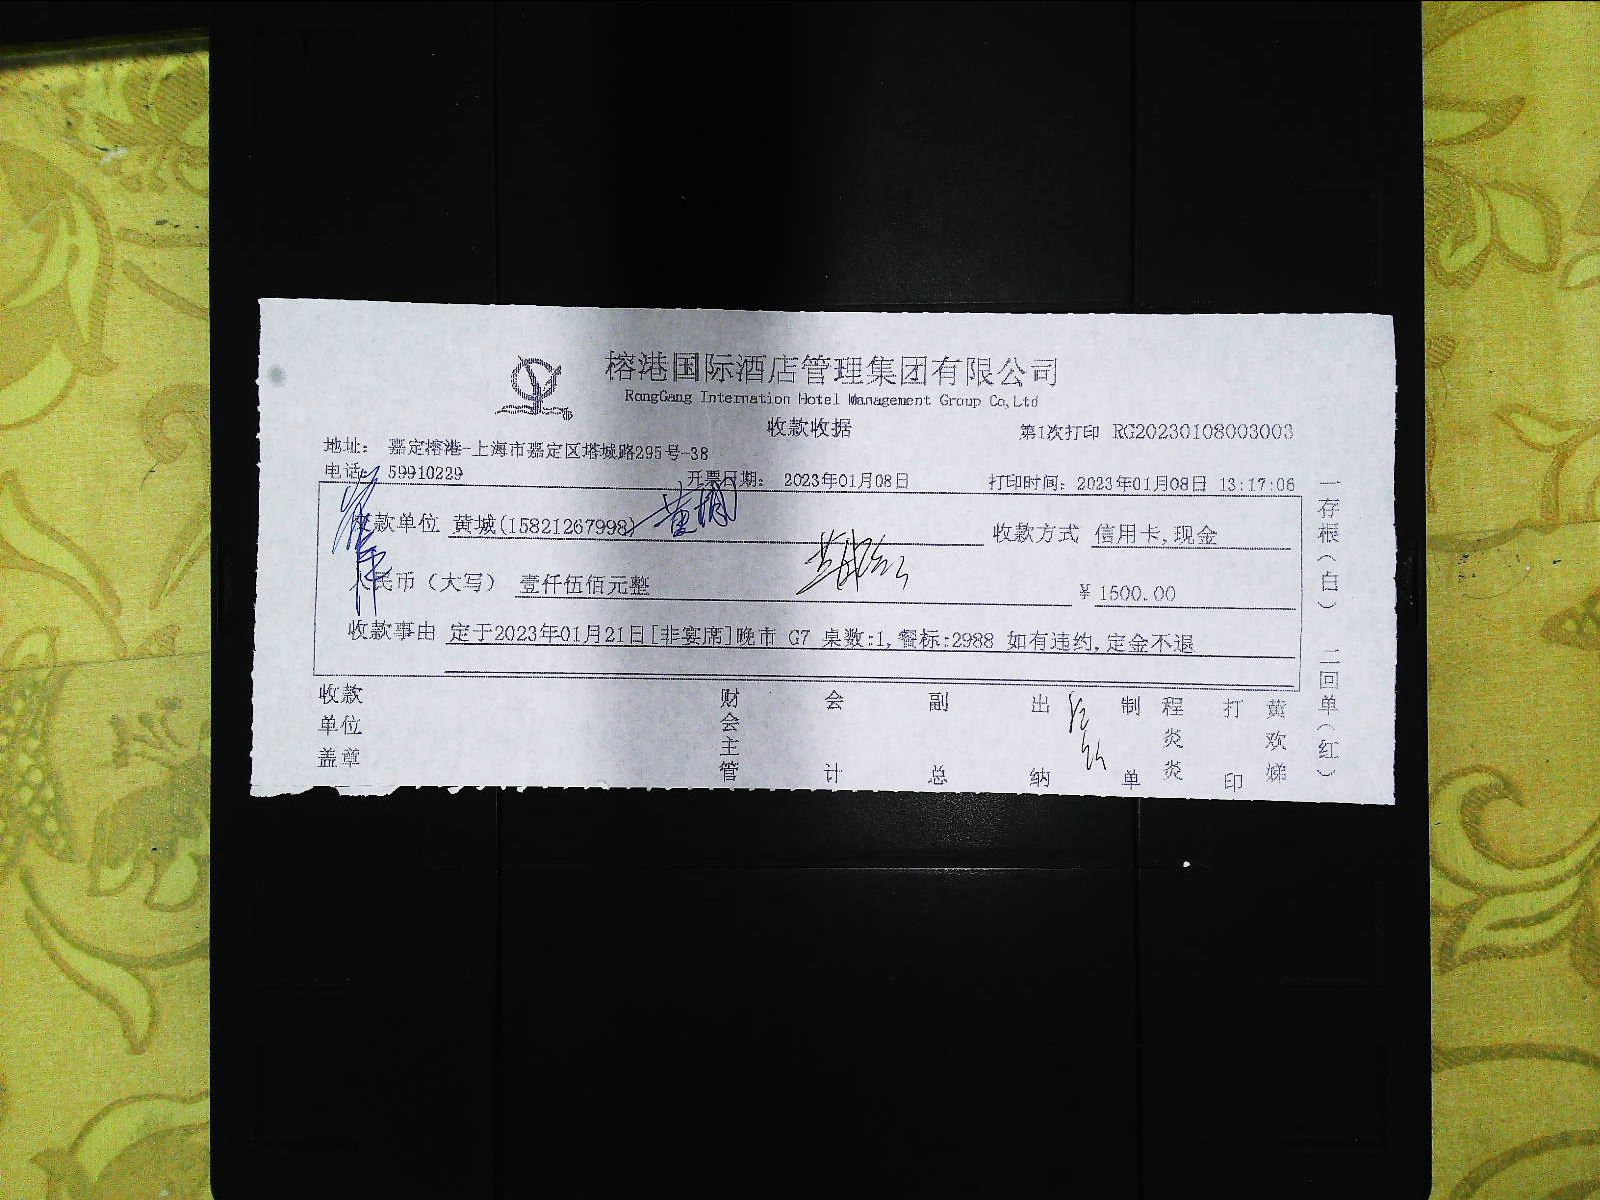 榕港国际酒店管理集团有限公司
RongGang Internation Hotel Management Group Co,Ltd
收款收据
第1次打印 RG20230108003003
地址： 嘉定榕港-上海市嘉定区塔城路295号-38
电话： 59910229
开票日期： 2023年01月08日
打印时间：2023年01月08日 13:17:06
交款单位 黄城(15821267998)
收款方式 信用卡,现金
人民币（大写） 壹仟伍佰元整
￥1500.00
收款事由 定于2023年01月21日[非宴席]晚市 G7 桌数:1,餐标:2988 如有违约,定金不退
收款单位盖章
财会主管
会计
副总
出纳
制单
程炎炎
打印
黄欢娣
一存根（白） 二回单（红）